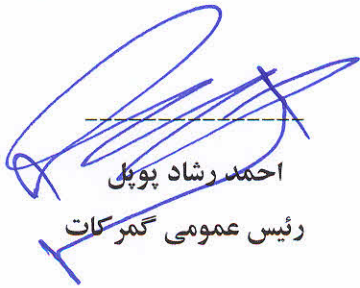 احمد رشاد پوپل
رئیس عمومی گمرکات